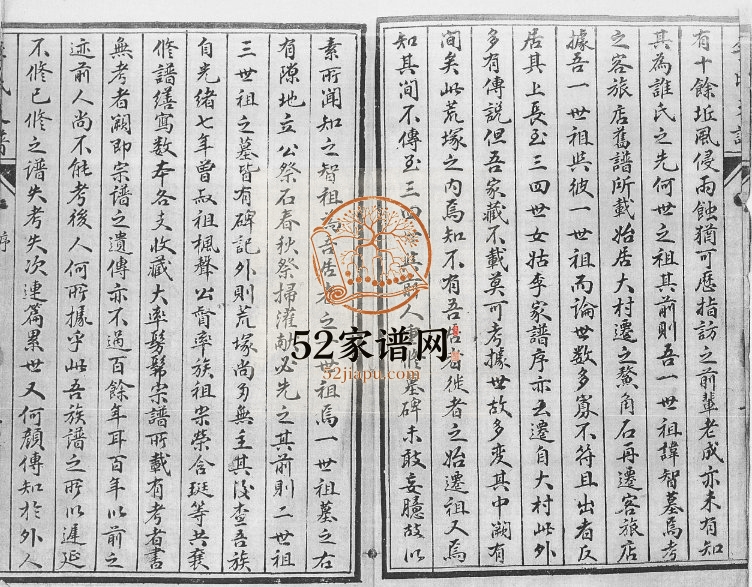 有十餘坵風侵雨蝕猶可歷指訪之前輩老成亦未有知
其為誰氏之先何世之祖其前則吾一世祖諱智墓焉考
之客旅店舊譜所載始居大村遷之鰲角石再遷客旅店
據吾一世祖與彼一世祖而論世數多寡不符且出者反
居其上長至三四世女姑李家譜序亦云遷自大村此外
多有傳說但吾家藏不載莫可考據世故多变其中闕有
间矣此荒塚之内焉知不有吾 者徙者之始遷祖又焉
知其间不傳至三四 人重修墓碑未敢妄臆故以
素所聞知之智祖為吾居 之一世祖焉一世祖墓之右
有隙地立公祭石春秋祭掃灌献必先之其前則二世祖
三世祖之墓皆有碑記外則荒塚尚多無主其後查吾族
自光緒七年曾叔祖楓聲公督率族祖崇荣含珽等共襄
修譜繕寫数本各支收藏大率髣髴宗譜所載有考者書
無考者闕即宗譜之遺傳亦不過百餘年耳百年以前之
迹前人尚不能考後人何所據乎此吾族譜之所以遲延
不修已修之谱失考失次連篇累世又何顏傳知於外人
序
52家谱网
52jiapu.com